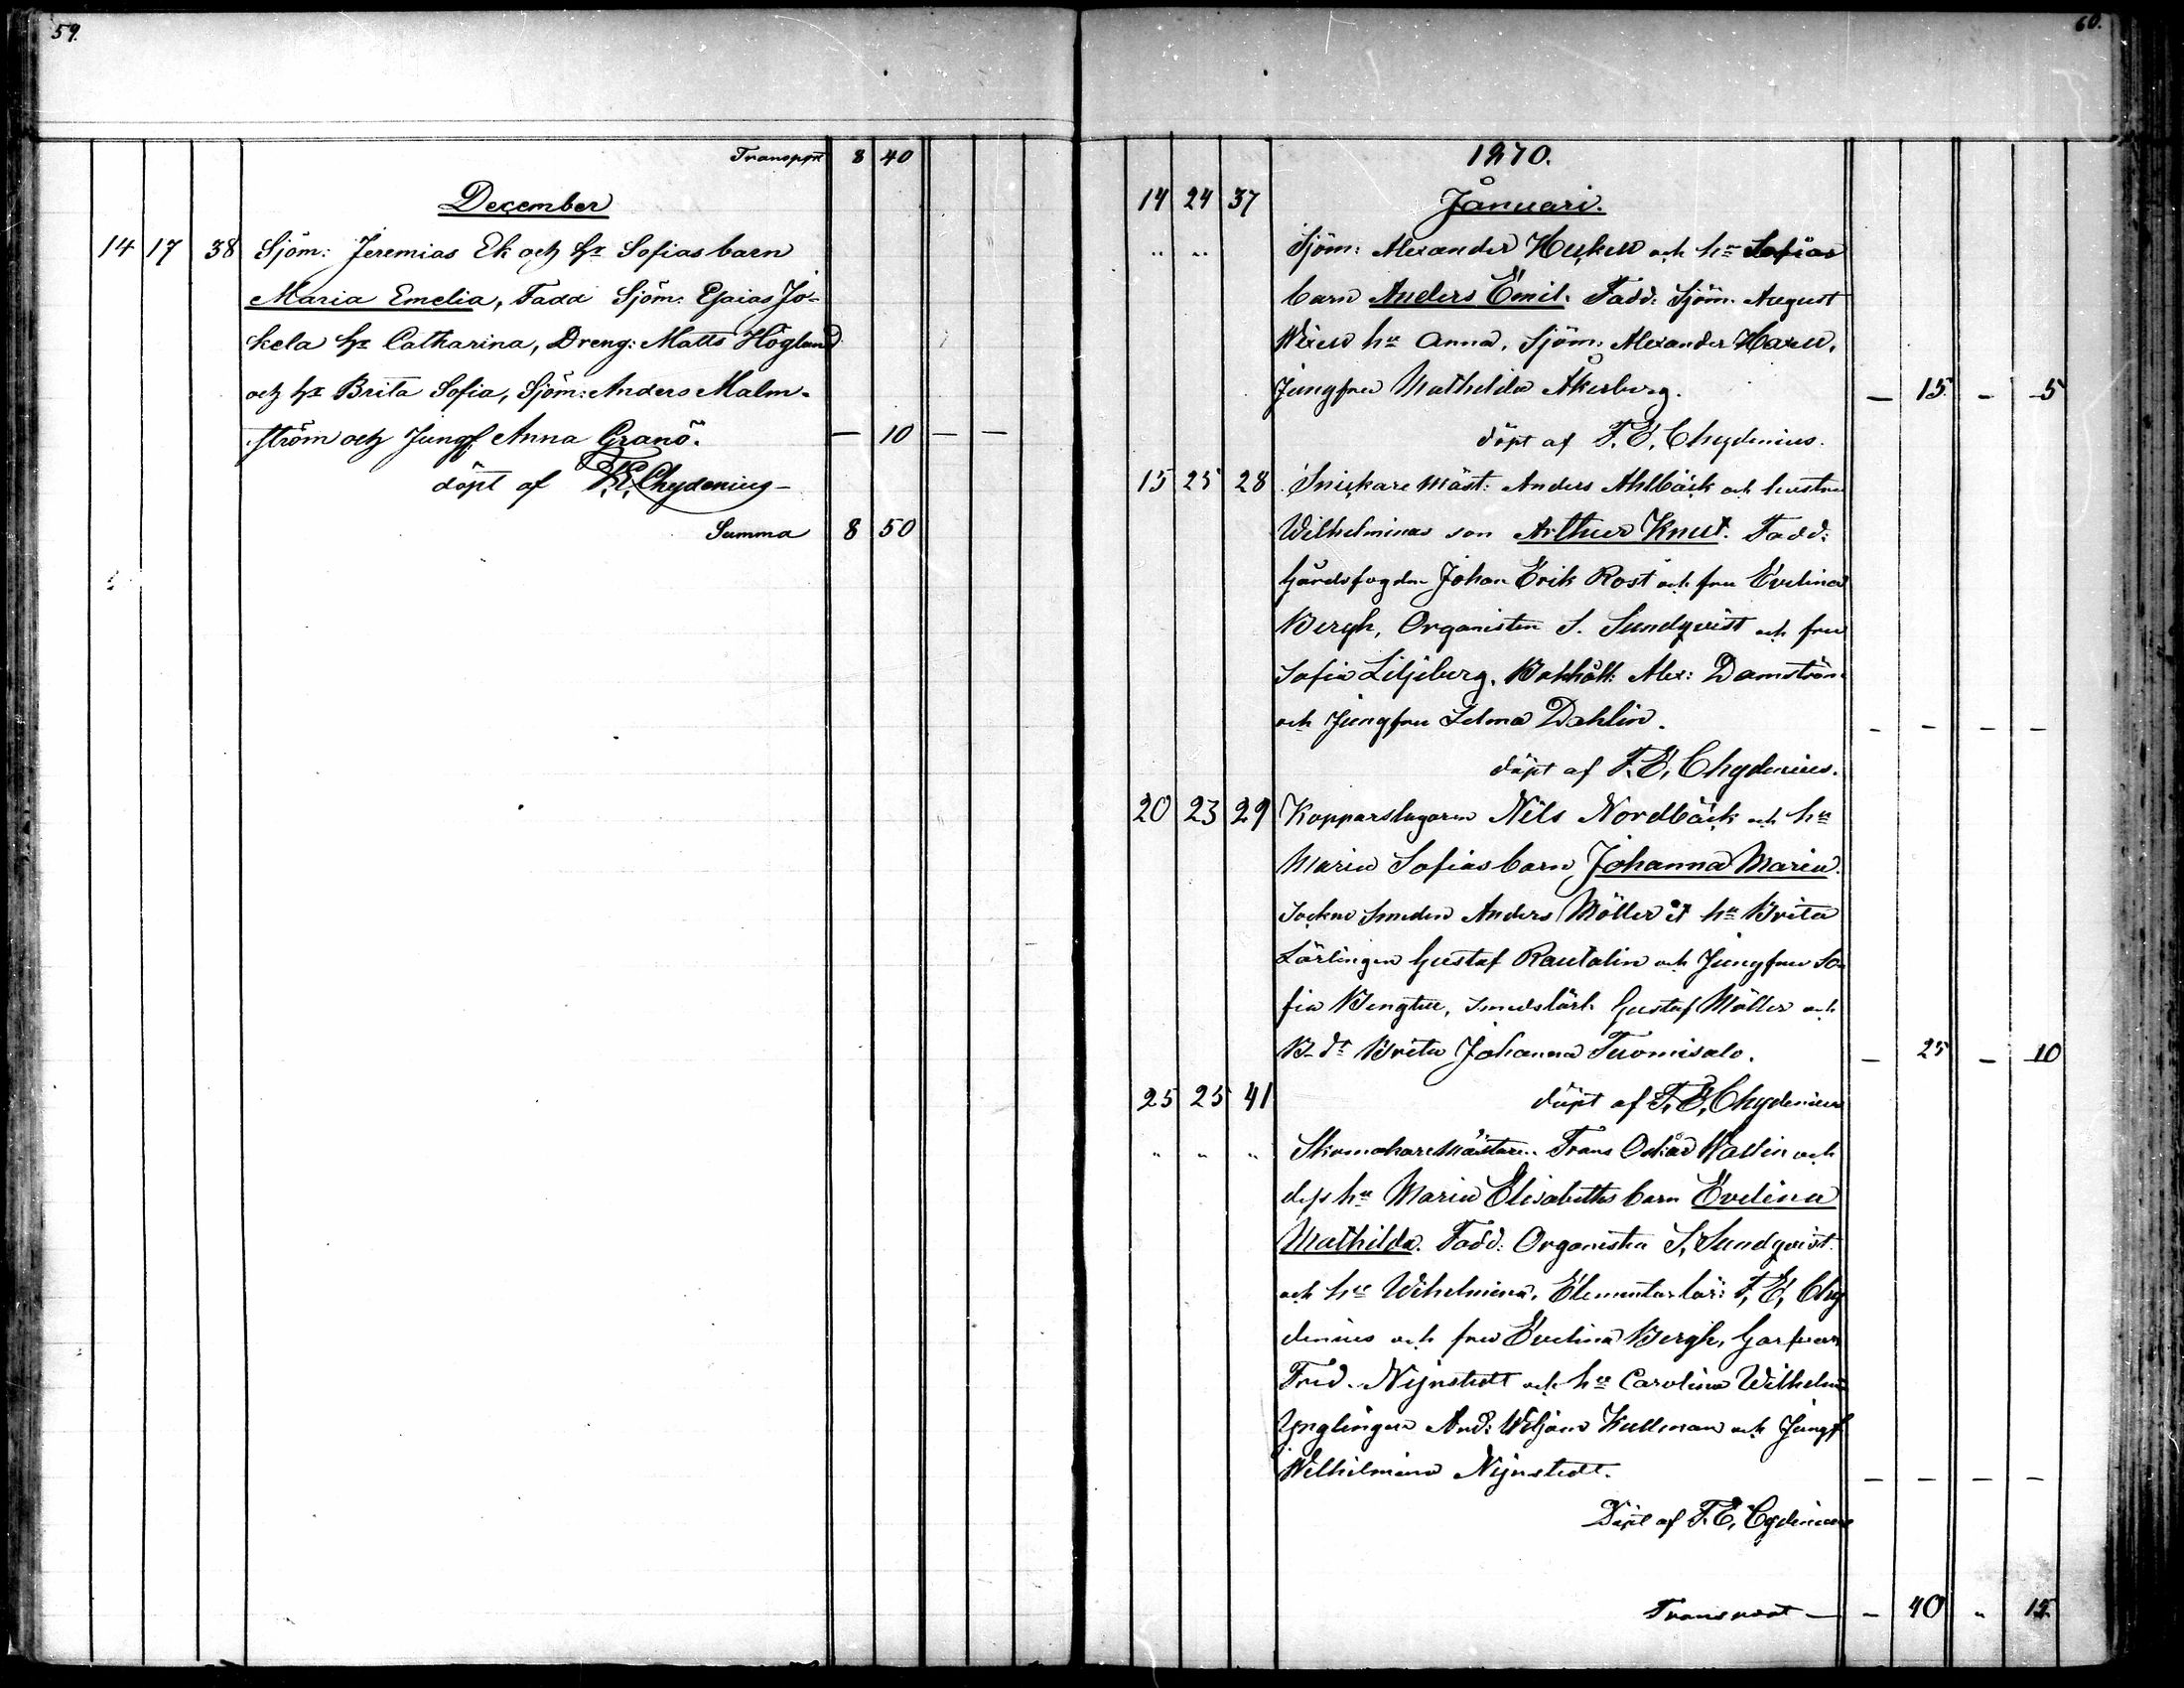 59.
Transport 8 40
December
14 17 38 Sjöm: Jeremias Ek och hr Sofias barn
Maria Emelia, Fadd Sjöm: Esaias Jo-
kela hr Catharina, Dreng: Matts Höglund
och hr Brita Sofia, Sjöm: Anders Malm-
ström och Jungf Anna Granö. — 10 — —
döpt af F.E. Chydenius
Summa 8 50
60.
1870.
14 24 37 Januari.
" " Sjöm: Alexander och hu Sofias
barn Anders Emil. Fadd: Sjöm. August
hu Anna, Sjöm: Alexander
Jungfru Mathilda Åkerberg. — 15 - 5
döpt af F.E. Chydenius.
15 25 28 Snickare mäst: Anders Ahlbäck och hustru
Wilhelminas son Arthur Knut. Fadd:
Gårdsfogden Johan Erik Rost och fru Evelina
Bergh, Organisten S. Sundqvist och fru
Sofia Liljeberg, Bokhåll: Alex: Damström
och Jungfru Selma Dahlin. - - - -
döpt af F.E. Chydenius.
20 23 29 Kopparslagaren Nils Nordbäck och hu
Maria Sofias barn Johanna Maria.
Sockne Smeden Anders Möller et hu Brita
Lärlingen Gustaf Rautalin och Jungfru So-
fia smedslärl. Gustaf Möller och
B-dr Brita Johanna Tuomisalo. — 25 — 10
25 25 41 döpt af F.E. Chydenius
" " " Skomakaremästaren Frans Oskar Wallin och
dess hu Maria Elisabeths barn Evelina
Mathilda. Fadd: Organisten S. Sundqvist
och hu Wilhelmina, Elementarlär: F.E. Chy
denius och fru Evelina Bergh, Garfvaren
Fred. Nynstedt och hu Carolina Wilhelmina
Ynglingen And: Wiljam Kullman och Jungf
Wilhelmina Nynstedt. — — — —
Döpt af F.E. Cydenius
Transport — - 40 " 15.